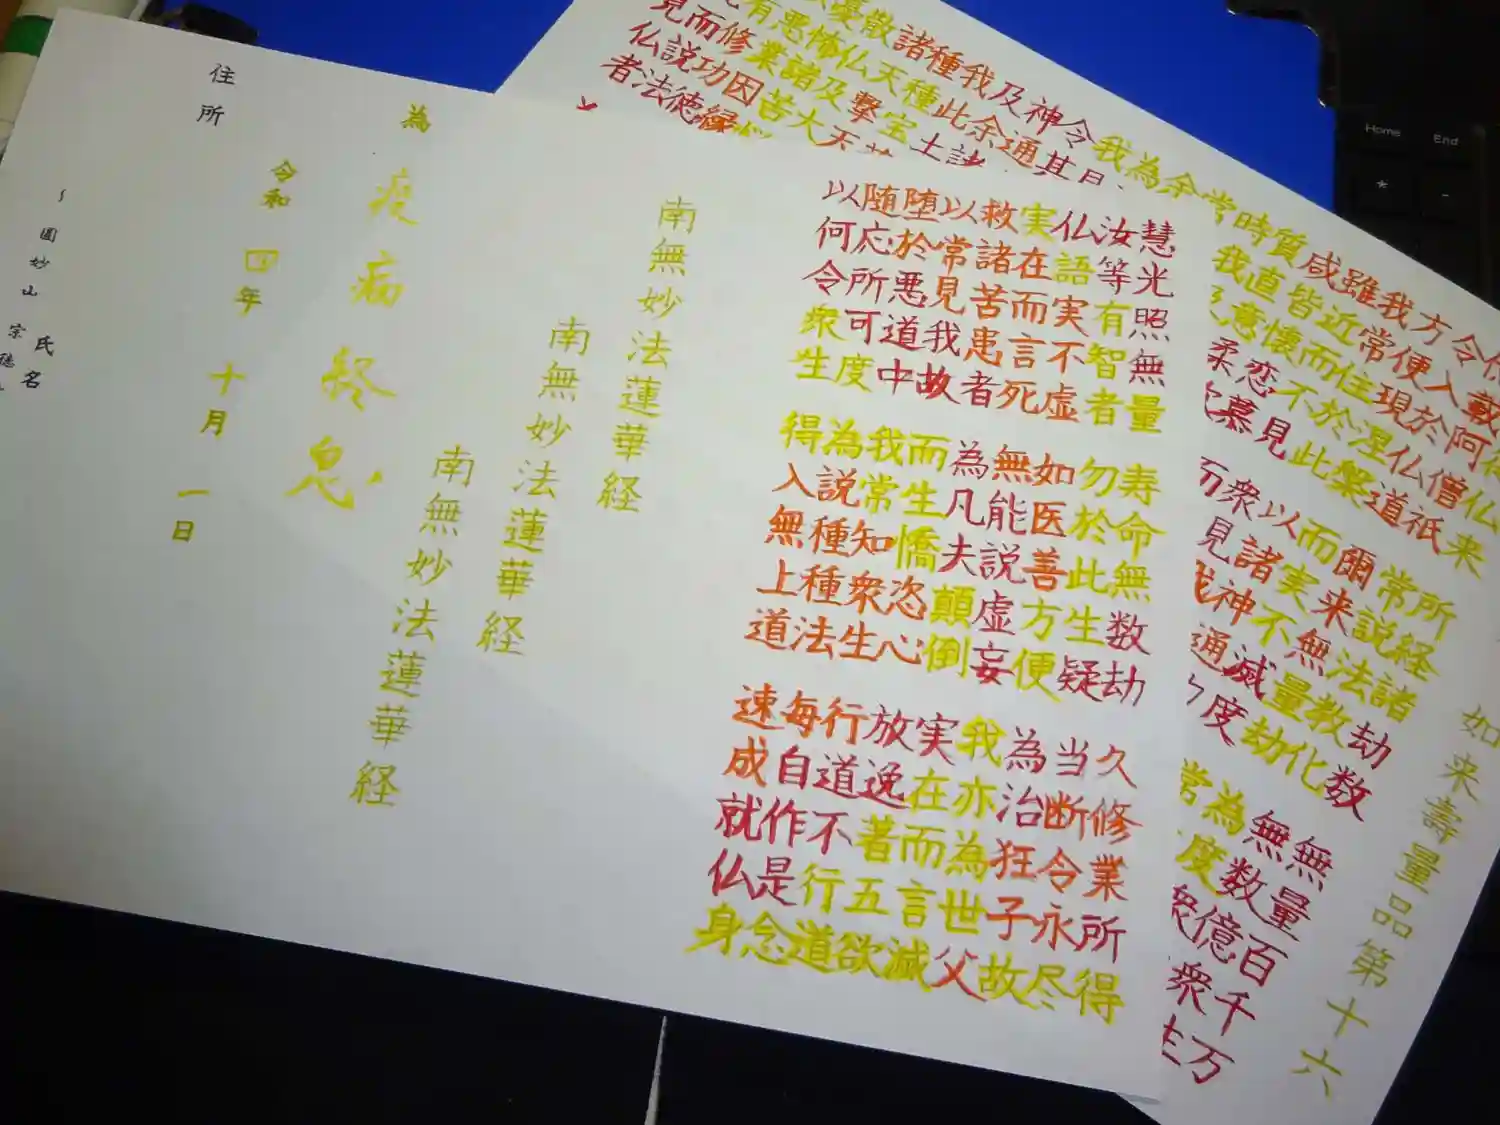 如来壽量品第十六
仏来
所経諸劫数
無量百千万
僧祇
常説法教化
無数億衆生
令入於仏道
爾来無量劫
為度衆
方便現涅槃
而実不滅度
常
我常住於此
以諸神通
雖近而不見
衆見我
咸皆懐恋慕
而
質直意柔
時我
常
余
為
我
令其
神通
及余
我此土
種種宝
諸天撃天
散仏及大
憂怖諸苦
有悪業因縁
修功徳
而説法
見仏者
慧光照無量 寿命無数劫 久修業所得
汝等有智者 勿於此生疑 当断令永尽
仏語実不虚 如医善方便 為治狂子故
実在而言死 無能説虚妄 我亦為世父
救諸苦患者 為凡夫顛倒 実在而言滅
以常見我故 而生憍恣心 放逸著五欲
堕於悪道中 我常知衆生 行道不行道
随応所可度 為説種種法 毎自作是念
以何令衆生 得入無上道 速成就仏身
南無妙法蓮華経
南無妙法蓮華経
南無妙法蓮華経
為 疫病終息
令和 四年 十月 一日
住所
氏名
圓妙山 宗徳
Home
End
*
-